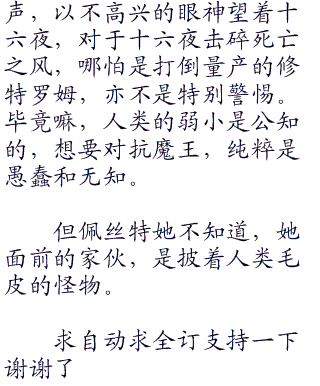 声，以不高兴的眼神望着十
六夜，对于十六夜击碎死亡
之风，哪怕是打倒量产的修
特罗姆，亦不是特别警惕。
毕竟嘛，人类的弱小是公知
的，想要对抗魔王，纯粹是
愚蠢和无知。
但佩丝特她不知道，她
面前的家伙，是披着人类毛
皮的怪物。
求自动求全订支持一下
谢谢了